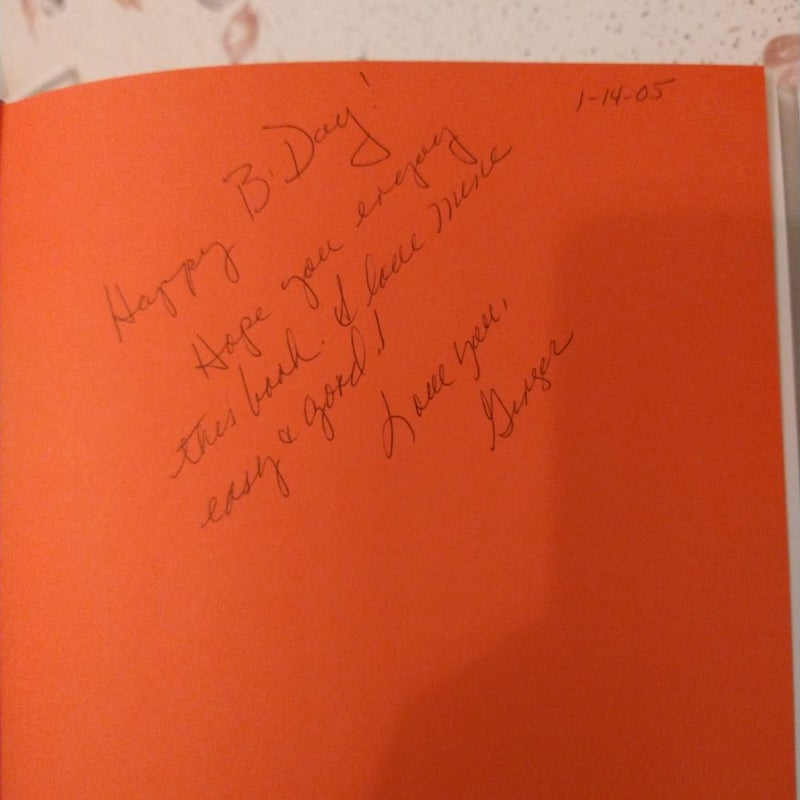 1-14-05
Happy B-Day!
Hope you enjoy
this book. I love mine
easy & good!
Love you,
Ginger